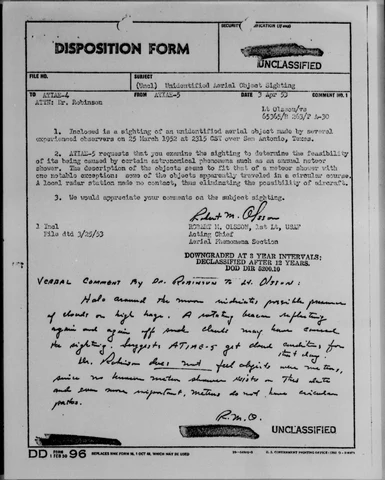 DISPOSITION FORM
SECURITY CLASSIFICATION (If any)
UNCLASSIFIED
FILE NO.
SUBJECT
(Uncl) Unidentified Aerial Object Sighting
TO ATIAE-4
FROM ATIAE-5
DATE 3 Apr 53
COMMENT NO. 1
ATTN: Mr. Robinson
Lt Olsson/vs
65365/B 263/P A-30
1. Inclosed is a sighting of an unidentified aerial object made by several
experienced observers on 25 March 1952 at 2315 CST over San Antonio, Texas.
2. ATIAE-5 requests that you examine the sighting to determine the feasibility
of its being caused by certain astronomical phenomena such as an annual meteor
shower. The description of the objects seems to fit that of a meteor shower with
one notable exception: some of the objects apparently traveled in a circular course.
A local radar station made no contact, thus eliminating the possibility of aircraft.
3. We would appreciate your comments on the subject sighting.
Robert M. Olsson
1 Incl
File dtd 3/25/53
ROBERT M. OLSSON, 1st Lt, USAF
Acting Chief
Aerial Phenomena Section
DOWNGRADED AT 3 YEAR INTERVALS;
DECLASSIFIED AFTER 12 YEARS.
DOD DIR 5200.10
VERBAL COMMENT BY DR. ROBINSON TO LT. OLSSON:
Halo around the moon indicates possible presence
of clouds or high haze. A rotating beacon reflecting
again and again off such clouds may have caused
the sighting. Suggests ATIAE-5 get cloud conditions for
that day.
Dr. Robinson does not feel objects were meteors,
since no known meteor shower exists on this date
and even more important, meteors do not have circular
paths.
R.M.O.
UNCLASSIFIED
DD FORM 1 FEB 50 96
REPLACES NME FORM 96, 1 OCT 48, WHICH MAY BE USED
U. S. GOVERNMENT PRINTING OFFICE